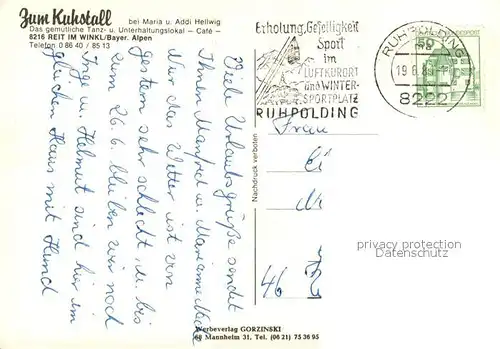 Zum Kuhstall
bei Maria u. Addi Hellwig
Das gemütliche Tanz- u. Unterhaltungslokal — Café —
8216 REIT IM WINKL/Bayer. Alpen
Telefon 0 86 40 / 85 13
Erholung, Geselligkeit
Sport
im
LUFTKURORT
und WINTER-
SPORTPLATZ
RUHPOLDING
RUHPOLDING
8222
Viele Urlaubsgrüße sendet
Ihnen Manfred u. Marianne
Nur das Wetter ist von
gestern sehr schlecht, u. bis
zum 26.6. bleiben wir noch
Inge u. Helmut sind hier im
gleichen Haus mit Hund
Nachdruck verboten
Frau
46
privacy protection
Datenschutz
Werbeverlag GORZINSKI
68 Mannheim 31, Tel. (06 21) 75 36 95